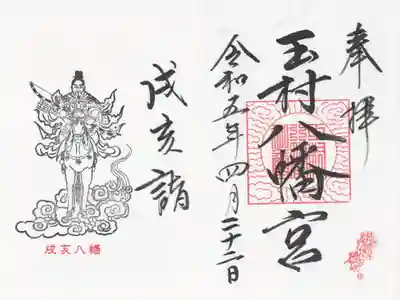 奉拝
玉村八幡宮
令和五年四月二十二日
戌亥詣
戌亥八幡